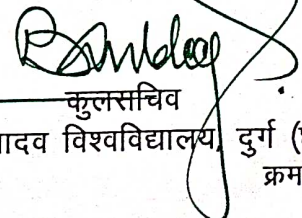 कुलसचिव
यादव विश्वविद्यालय, दुर्ग
क्रम